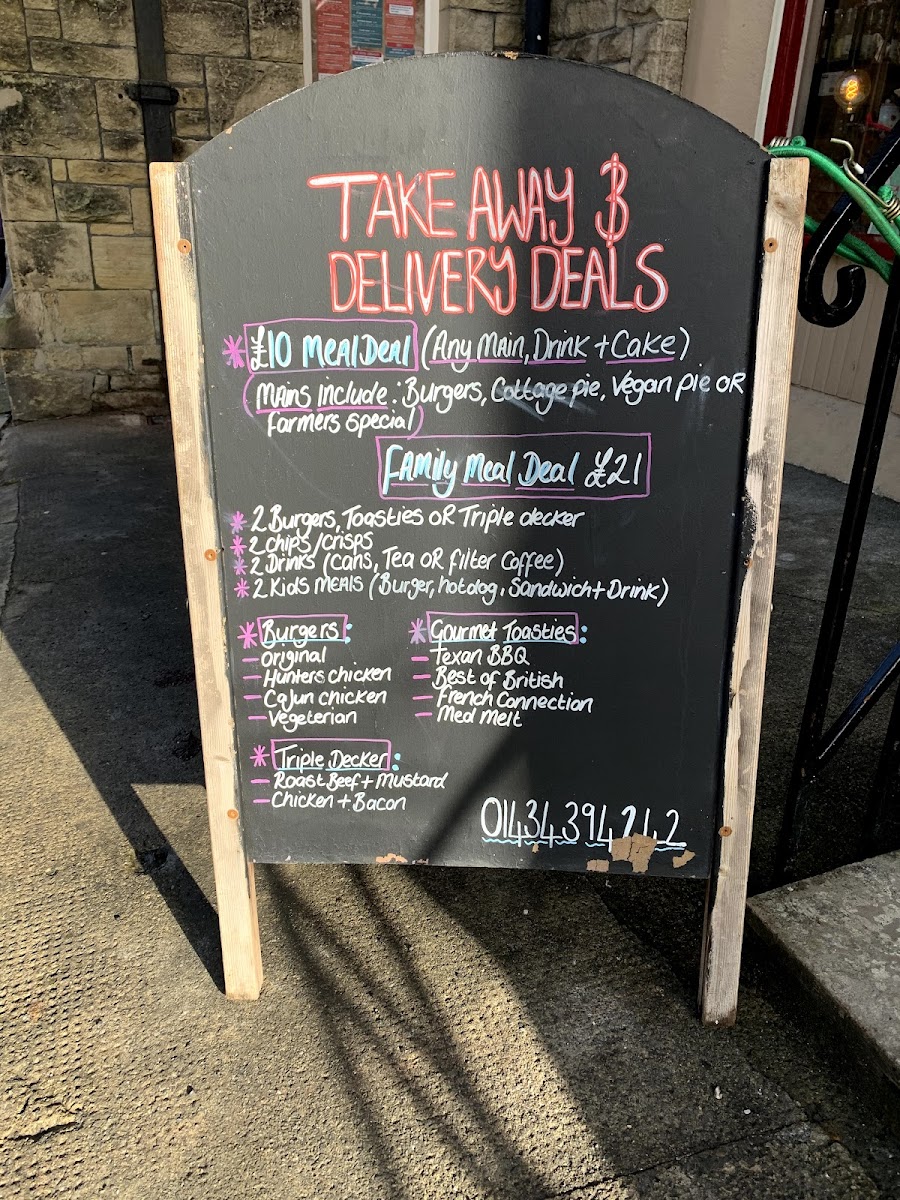 TAKE AWAY &
DELIVERY DEALS
* £10 Meal Deal (Any Main, Drink + Cake)
(Mains include: Burgers, Cottage pie, Vegan pie OR
farmers special)
Family Meal Deal £21
* 2 Burgers, Toasties OR Triple decker
* 2 chips/crisps
* 2 Drinks (cans, Tea OR filter Coffee)
* 2 Kids Meals (Burger, hotdog, Sandwich + Drink)
* Burgers:
- original
- Hunters chicken
- Cajun chicken
- Vegeterian
* Gourmet Toasties:
- Texan BBQ
- Best of British
- French Connection
- Med Melt
* Triple Decker:
- Roast Beef + Mustard
- Chicken + Bacon
01434394242